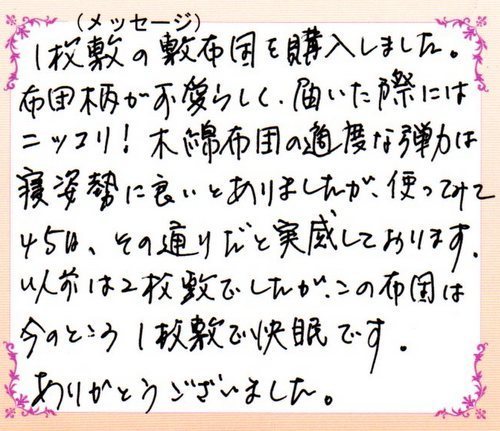 (メッセージ)
1枚敷の敷布団を購入しました。
布団柄が可愛らしく、届いた際には
ニッコリ！木綿布団の適度な弾力は
寝姿勢に良いとありましたが、使ってみて
45日、その通りだと実感しております。
以前は2枚敷でしたが、この布団は
今のところ1枚敷で快眠です。
ありがとうございました。